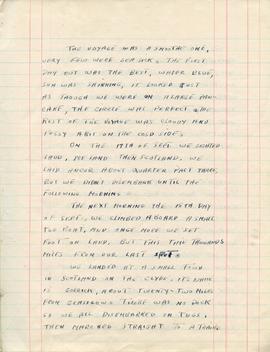 THE VOYAGE WAS A SMOOTHE ONE,
VERY FEW WERE SEA SICK. THE FIRST
DAY OUT WAS THE BEST, WATER BLUE,
SUN WAS SHINNING, IT LOOKED JUST
AS THOUGH WE WERE ON A LARGE PAN-
CAKE, THE CIRCLE WAS PERFECT. THE
REST OF THE VOYAGE WAS CLOUDY AND
FOGGY A BIT ON THE COLD SIDE.
ON THE 17TH OF SEPT. WE SIGHTED
LAND, IRELAND THEN SCOTLAND. WE
LAID ANCOR ABOUT QUARTER PAST THREE,
BUT WE DIDN'T DISEMBARK UNTIL THE
FOLLOWING MORNING.
THE NEXT MORNING THE 18TH DAY
OF SEPT., WE CLIMBED ABOARD A SMALL
TUG BOAT, AND ONCE MORE WE SET
FOOT ON LAND. BUT THIS TIME THOUSANDS
MILES FROM OUR LAST SPOT.
WE LANDED AT A SMALL TOWN
IN SCOTLAND ON THE CLYDE. IT'S NAME
IS GORRICK, ABOUT TWENTY-TWO MILES
FROM GLASGOW. THERE WAS NO DOCK
SO WE ALL DISEMBARKED ON TUGS,
THEN MARCHED STRAIGHT TO A TRAIN.